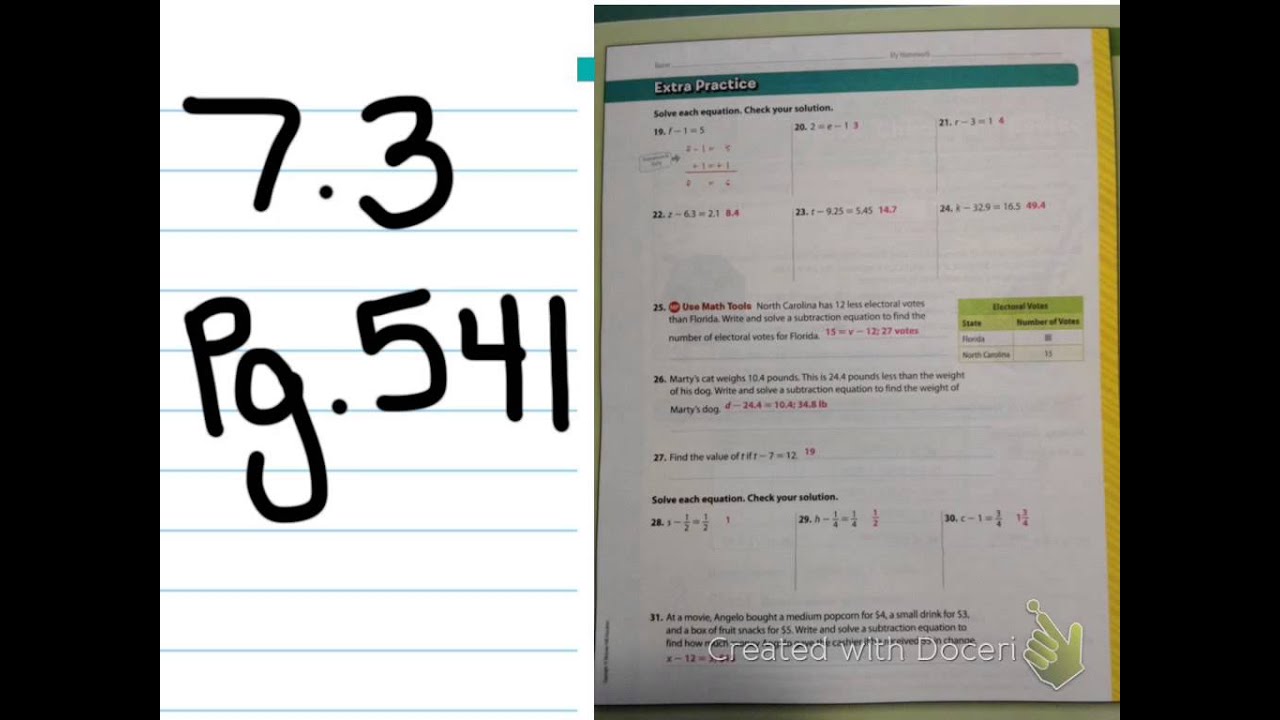 7.3
Pg.541
Name
My Homework
Extra Practice
Solve each equation. Check your solution.
19. f − 1 = 5
20. 2 = e − 1 3
21. r − 3 = 1 4
22. z − 6.3 = 2.1 8.4
23. t − 9.25 = 5.45 14.7
24. k − 32.9 = 16.5 49.4
25. Use Math Tools North Carolina has 12 less electoral votes
than Florida. Write and solve a subtraction equation to find the
number of electoral votes for Florida. 15 = v − 12; 27 votes
Electoral Votes
State Number of Votes
Florida
North Carolina 15
26. Marty's cat weighs 10.4 pounds. This is 24.4 pounds less than the weight
of his dog. Write and solve a subtraction equation to find the weight of
Marty's dog. d − 24.4 = 10.4; 34.8 lb
27. Find the value of t if t − 7 = 12. 19
Solve each equation. Check your solution.
28. s − 1/2 = 1/2 1
29. h − 1/4 = 1/4 1/2
30. c − 1 = 3/4 1 3/4
31. At a movie, Angelo bought a medium popcorn for $4, a small drink for $3,
and a box of fruit snacks for $5. Write and solve a subtraction equation to
find how much the cashier if he received in change.
x − 12 =
Created with Doceri